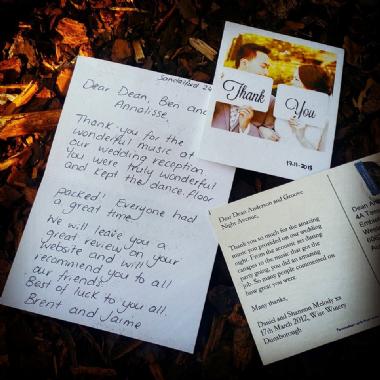 Sandalford 24
Dear Dean, Ben and
Annalisse.
Thank you for the
wonderful music at
our wedding reception
You were truly wonderful
and kept the dance floor
packed! Everyone had
a great time
We will leave you a
great review on your
website and will
recommend you to all
our friends!
Best of luck to you all.
Brent and Jaime
Thank
You
17.11.2013
Dear Dean Anderson and Groove
Night Avenue,
Thank you so much for the amazing
music you provided on our wedding
night. From the acoustic set during
canapes to the music that got the
party going, you did an amazing
job. So many people commented on
how great you were.
Many thanks,
Daniel and Shannon Melody xx
17th March 2012, Wise Winery
Dunsborough
Dean
4A